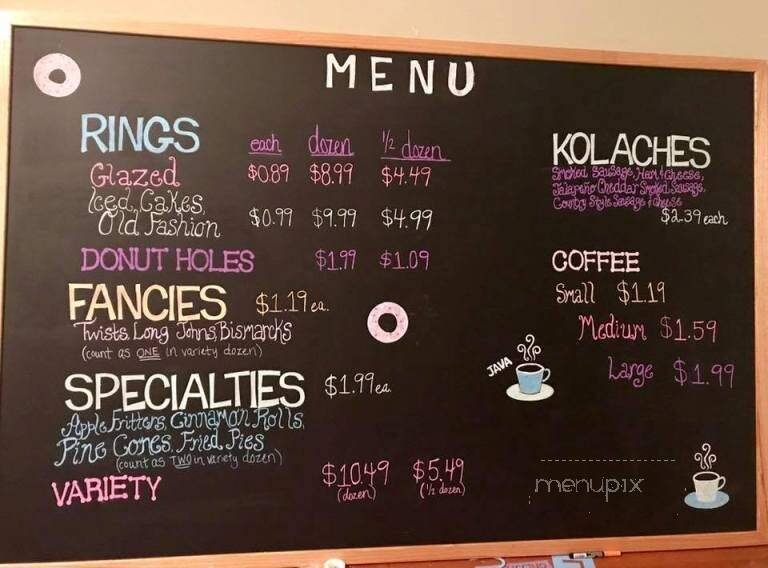 MENU
RINGS each dozen 1/2 dozen
Glazed $0.89 $8.99 $4.49
Iced, Cakes,
Old Fashion $0.99 $9.99 $4.99
DONUT HOLES $1.99 $1.09
FANCIES $1.19 ea.
Twists, Long Johns, Bismarcks
(count as ONE in variety dozen)
SPECIALTIES $1.99 ea.
Apple Fritters, Cinnamon Rolls,
Pine Cones, Fried Pies
(count as TWO in variety dozen)
VARIETY $10.49 $5.49
(dozen) (1/2 dozen)
KOLACHES
Smoked Sausage, Ham & Cheese,
Jalapeño Cheddar Smoked Sausage,
Country Style Sausage & Cheese
$2.39 each
COFFEE
Small $1.19
Medium $1.59
Large $1.99
JAVA
menupix